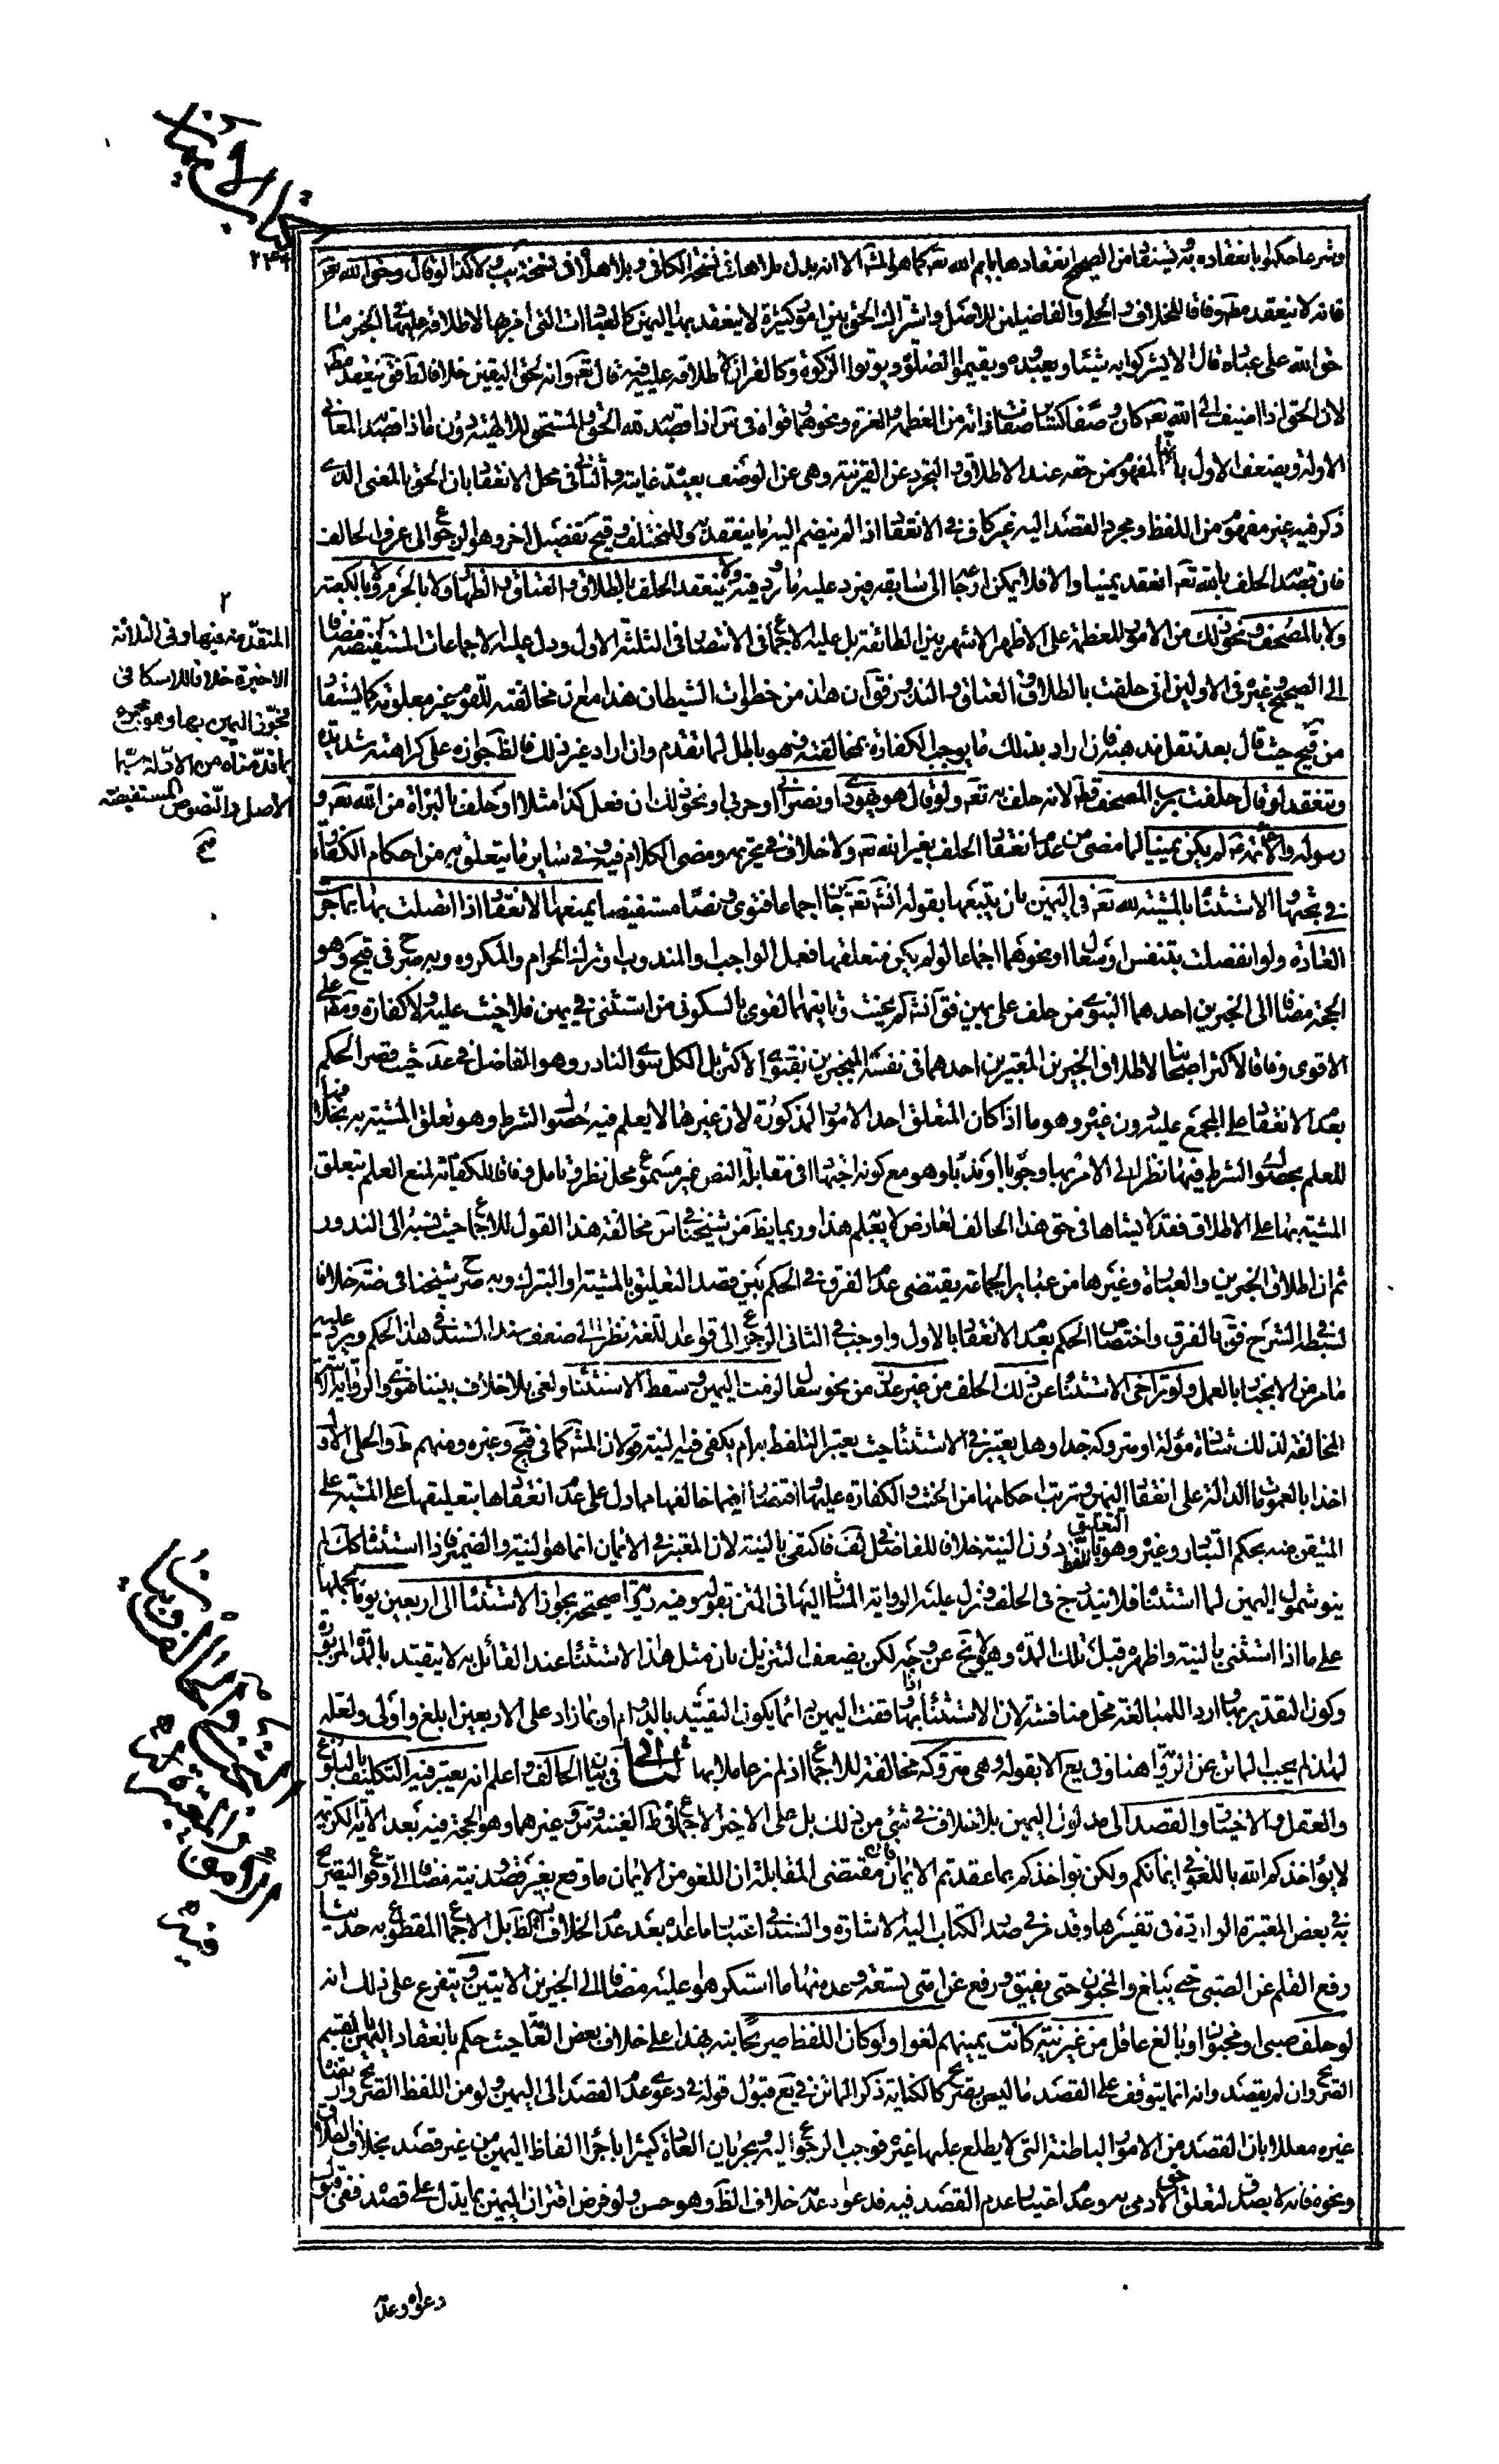 كتاب الأيمان
٢٤٦
فانه لا ينعقد مطلقا وفاقا للخلاف والحلي والفاضلين للاصل واشتراك الحق بين امور كثيرة لا ينعقد بها اليمين كالعبادات التي امر بها لاطلاقه عليها في الخبر ما
حق الله على عباده قال لا يشركوا به شيئا ويعبدوه ويقيموا الصلوة ويؤتوا الزكوة وكالقران لاطلاقه عليه فيه قال تعه وانه لحق اليقين خلافا لط فق ينعقد مط
لان الحق اذا اضيف الى الله تعه كان وصفا كسائر صفات ذاته من العظمة والعزة ونحوهما وقواه في س اذا قصد به لله الحق والمستحق للالهية دون ما اذا قصد المعاني
الاولة ويضعف الاول بان المفهوم من حقه عند الاطلاق والتجرد عن القرينة وهي عن الوصف بعيدة غايته والثاني في محل الانعقاد بان الحق بالمعنى الذي
ذكر فيه غير مفهوم من اللفظ ومجرد القصد اليه غير كاف في الانعقاد اذا لم ينضم اليه ما ينعقد به وللمختلف وقيح تفصيل اخر وهو الرجوع الى عرف الحالف
فان قصد الحلف بالله تعه انعقد يمينا والا فلا ويمكن ارجاعه الى سابقه فيرد عليه ما يرد فيه ولا ينعقد الحلف بالطلاق والعتاق والظهار ولا بالحرم ولا بالكعبة
ولا بالمصحف ونحو ذلك من الامور المعظمة على الاظهر الاشهر بين الطائفة بل عليه الاجماع في الانتصار في الثلثة الاول ودل عليه الاجماعات المستفيضة مضافا
الى الصحيح وغيره في الاولين اني حلفت بالطلاق والعتاق والنذور فق ان هذا من خطوات الشيطان هذا مع ان مخالفته للقوم غير معلومة كما يستفاد
من قيح حيث قال بعد نقل مذهبه فان اراد بذلك ما يوجب الكفارة بمخالفته فهو باطل لما تقدم وان اراد غير ذلك فالظ جوازه على كراهته شديدة
وتنعقد لو قال حلفت برب المصحف قطعا لانه حلف به تعه ولو قال هو يهودي او نصراني او حربي او نحو ذلك ان فعل كذا مثلا او حلف بالبرائة من الله تعه و
رسوله والائمة ع لم يكن يمينا لما مضى من عدم انعقاد الحلف بغير الله تعه ولا خلاف في تحريمه ومضى الكلام فيه وفي ساير ما يتعلق به من احكام الكفارة
في بحثها والاستثناء بالمشية لله تعه في اليمين بان يتبعها بقوله انشاء الله تعه جائز اجماعا فتوى ونصا مستفيضا يمنعها الانعقاد اذا اتصلت بها بما جرت
العادة ولو انفصلت بتنفس او سعال او نحوهما اجماعا لو لم يكن متعلقها فعل الواجب والمندوب او ترك الحرام والمكروه وبه صرح في قيح وهو
الحجة مضافا الى الخبرين احدهما النبوي من حلف على يمين فق انشاء الله لم يحنث وثانيهما القوي بالسكوني من استثنى في يمين فلا حنث عليه ولا كفارة ومط على
الاقوى وفاقا لاكثر اصحابنا لاطلاق الخبرين المعتبرين احدهما في نفسه المنجبرين بفتوى الاكثر بل الكل سوى النادر وهو الفاضل في عد حيث قصر الحكم
بعدم الانعقاد على المجمع عليه دون غيره وهو ما اذا كان المتعلق احد الامور المذكورة لان غيرها لا يعلم فيه حصول الشرط وهو تعلق المشية به بخلافها
للعلم بحصول الشرط فيها نظرا الى الامر بها وجوبا او ندبا وهو مع كونه اجتهادا في مقابلة النص غير مسموع محل نظر وتامل وفاقا للكفاية لمنع العلم بتعلق
المشية بها على الاطلاق فقد لا يشاءها في حق هذا الحالف لعارض لا يعلم هذا وربما يظهر من شيخنا في س مخالفة هذا القول للاجماع حيث نسبه الى الندور
ثم ان اطلاق الخبرين والعبارة وغيرها من عبائر الجماعة يقتضي عدم الفرق في الحكم بين قصد التعليق بالمشية او التبرك وبه صرح شيخنا في ضه خلافا
لسبطه في الشرح فق بالفرق واختصاص الحكم بعدم الانعقاد بالاول واوجب في الثاني الرجوع الى قواعد اللغة نظرا الى ضعف سند المستند في هذا الحكم ويرد عليه
ما مر من الانجبار بالعمل ولو تراخى الاستثناء عن ذلك الحلف من غير عذر من نحو سعال لزمت اليمين وسقط الاستثناء ولغى بلا خلاف بيننا فتوى والرواية
المخالفة لذلك شاذة مؤلة او متروكة جدا وهل يعتبر في الاستثناء حيث يعتبر التلفظ به ام يكفي فيه النية قولان المشهور كما في قيح وغيره ومنهم ط والحلي الاول
اخذا بالعمومات الدالة على انعقاد اليمين وترتب احكامها من الحنث والكفارة عليها واقتصارا فيما خالفها مما دل على عدم انعقادها بتعليقها على المشية على
المتيقن منه بحكم التبادر وغيره وهو التعليق باللفظ دون النية خلافا للفاضل في لف فاكتفى بالنية لان المعتبر في الايمان انما هو النية والضمير فاذا استثنى كك لم
ينو شمول اليمين لما استثناه فلا يندرج في الحلف ونزل عليه الرواية المشار اليها في المتن بقوله وفيه رواية صحيحة بجواز الاستثناء الى اربعين يوما بحملها
على ما اذا استثنى بالنية واظهره قبل تلك المدة وهو لا يخ عن وجه لكن يضعف التنزيل بان مثل هذا الاستثناء عند القائل به لا يتقيد بالمدة المزبورة
وكون التقدير بها واردا للمبالغة محل مناقشة لان الاستثناء بها اذا وقفت اليمين دائما يكون التقييد بالدوام او بما زاد على الاربعين ابلغ واولى ولعله
لهذا لم يجب الماتن عن الرواية هنا وفي يع الا بقوله وهي متروكة مخالفة للاجماع اذ لم نر عاملا بها الثاني في الحالف واعلم انه يعتبر فيه التكليف بالبلوغ
والعقل والاختيار والقصد الى مدلول اليمين بلا خلاف في شئ من ذلك بل على الاخير الاجماع في ظ الغنية وس وغيرهما وهو الحجة فيه بعد الاية الكريمة
لا يؤاخذكم الله باللغو في ايمانكم ولكن يؤاخذكم بما عقدتم الايمان فان مقتضى المقابلة ان اللغو من الايمان ما وقع بغير قصد ونية مضافا الى وقوع التصريح
به في بعض المعتبرة الواردة في تفسيرها وقد مر في صدر الكتاب اليه الاشارة والسند في اعتبار ما عداه بعد عدم الخلاف الظ بل الاجماع المقطوع به حديثا
رفع القلم عن الصبي حتى يبلغ والمجنون حتى يفيق ورفع عن امتي تسعة وعد منها ما استكرهوا عليه مضافا الى الخبرين الاتيين ويتفرع على ذلك انه
لو حلف صبي او مجنون او بالغ عاقل من غير نية كانت يمينهم لغوا ولو كان اللفظ صريحا نبه بهذا على خلاف بعض العامة حيث حكم بانعقاد اليمين بالقسم
الصريح وان لم يقصد وانه انما يتوقف على القصد ما ليس بصريح كالكناية ذكر الماتن في يع قبول قوله في دعوى عدم القصد الى اليمين ولو من اللفظ الصريح
غيره معللا بان القصد من الامور الباطنة التي لا يطلع عليها غيره فوجب الرجوع اليه وبجريان العادة كثيرا باجراء الفاظ اليمين من غير قصد بخلاف الطلاق
ونحوه فانه لا يصدق لتعلق حق الادمي به وعدم اعتياد عدم القصد فيه فدعواه عدمه خلاف الظ وهو حسن ولو فرض اقتران اليمين بما يدل على قصده ففي قبول
المتقدمة فيها وفي الثلاثة
الاخيرة خلافا للاسكافي
فجوز اليمين بها وهو محجوج
بما قدمناه من الادلة سيما
الاصل والنصوص المستفيضة
دعواه وعدمه